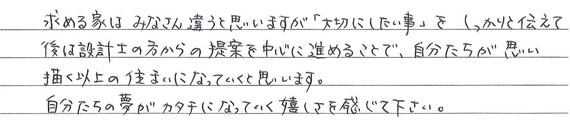 求める家は みなさん違うと思いますが「大切にしたい事」を しっかりと伝えて
後は設計士の方からの提案を中心に進めることで、自分たちが思い
描く以上の住まいになっていくと思います。
自分たちの夢がカタチになっていく嬉しさを感じて下さい。